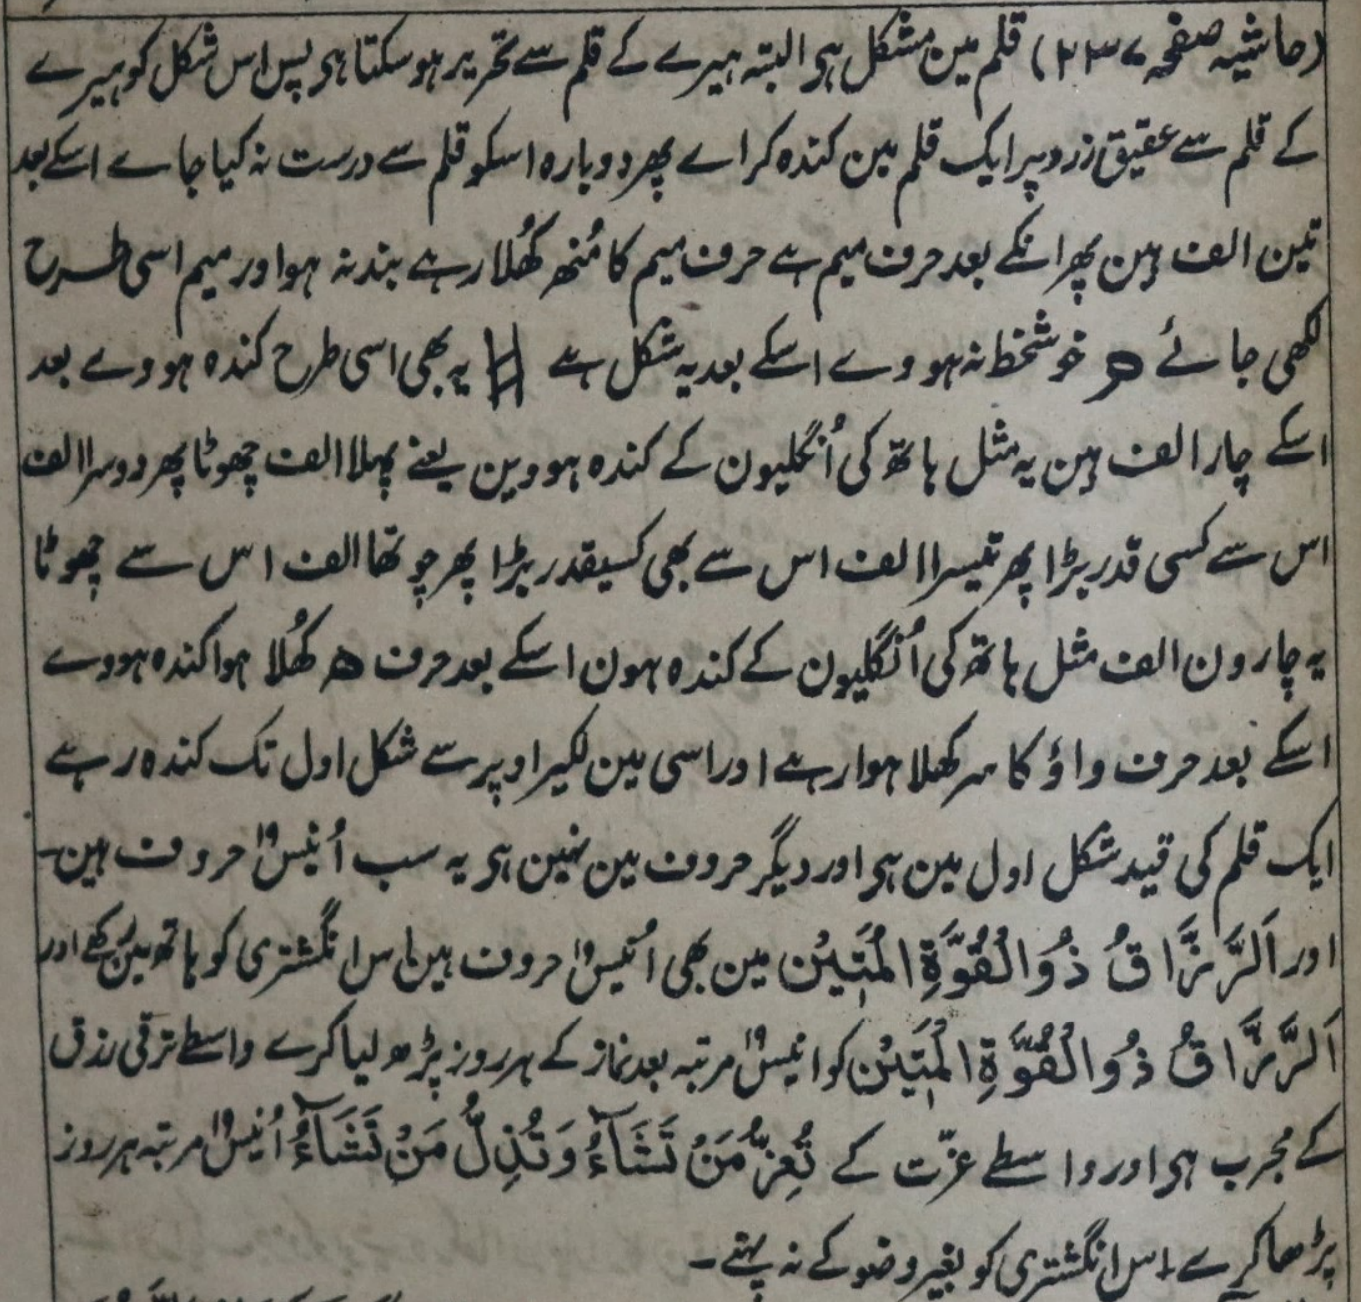 (حاشیہ صفحہ ۲۳۷) قلم مین مشکل ہی البتہ ہیرے کے قلم سے تحریر ہو سکتا ہی پس اس شکل کو ہیرے
کے قلم سے عقیق زرد پر ایک قلم مین کندہ کراے پھر دوبارہ اسکو قلم سے درست نہ کیا جاے اسکے بعد
تین الف ہین پھر انکے بعد حرف میم ہے حرف میم کا مُنھ کھُلا رہے بند نہ ہو اور میم اسی طرح
لکھی جائے م خوشخط نہ ہووے اسکے بعد یہ شکل ہے # یہ بھی اسی طرح کندہ ہووے بعد
اسکے چار الف ہین یہ مثل ہاتھ کی اُنگلیون کے کندہ ہووین یعنے پہلا الف چھوٹا پھر دوسرا الف
اس سے کسی قدر بڑا پھر تیسرا الف اس سے بھی کسیقدر بڑا پھر چوتھا الف اس سے چھوٹا
یہ چارون الف مثل ہاتھ کی اُنگلیون کے کندہ ہون اسکے بعد حرف ھ کھُلا ہوا کندہ ہووے
اسکے بعد حرف واؤ کا سر کھلا ہوا رہے اور اسی مین لکیر اوپر سے شکل اول تک کندہ رہے
ایک قلم کی قید شکل اول مین ہی اور دیگر حروف مین نہین ہی یہ سب اُنیس ۱۹ حروف ہین۔
اور اَلرَّزَّاقُ ذُوالْقُوَّةِ الْمَتِیْن مین بھی اُنیس ۱۹ حروف ہین اس انگشتری کو ہاتھ مین رکھے اور
اَلرَّزَّاقُ ذُوالْقُوَّةِ الْمَتِیْن کو انیس ۱۹ مرتبہ بعد نماز کے ہر روز پڑھ لیا کرے واسطے ترقی رزق
کے مجرب ہی اور واسطے عزّت کے تُعِزُّ مَنْ تَشَآءُ وَتُذِلُّ مَنْ تَشَآءُ اُنیس ۱۹ مرتبہ ہر روز
پڑھا کرے اس انگشتری کو بغیر وضو کے نہ پہنے۔